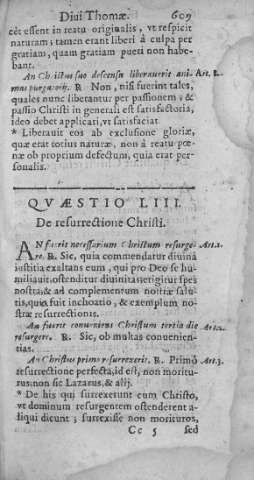 Diui Thomæ. 609
cét essent in reatu originalis, vt respicit
naturam; tamen erant liberi à culpa per
gratiam, quam gratiam pueri non habe-
bant.
An Christus suo descensu liberauerit ani- Art. 8.
mas purgatorij. R Non, nisi fuerint tales,
quales nunc liberantur per passionem; &
passio Christi in generali est satisfactoria,
ideo debet applicari, vt satisfaciat
* Liberauit eos ab exclusione gloriæ,
quæ erat totius naturæ, non à reatu pœ-
næ ob proprium defectum, quia erat per-
sonalis.
QVÆSTIO LIII.
De resurrectione Christi.
AN fuerit necessarium Christum resurge- Art. 1.
re. R Sic, quia commendatur diuina
iustitia exaltans eum, qui pro Deo se hu-
miliauit. ostenditur diuinitas erigitur spes
nostra; & ad complementum nostræ salu-
tis, quæ fuit inchoatio, & exemplum no-
stræ resurrectionis.
An fuerit conueniens Christum tertia die Art. 2.
resurgere. R Sic, ob multas conuenien-
tias.
An Christus primo resurrexerit. R Primò Art. 3.
resurrectione perfecta, id est, non moritu-
rus. non sic Lazarus, & alij.
* De his qui surrexerunt cum Christo,
vt dominum resurgentem ostenderent a-
liqui dicunt; surrexisse non morituros,
Cc 5 sed